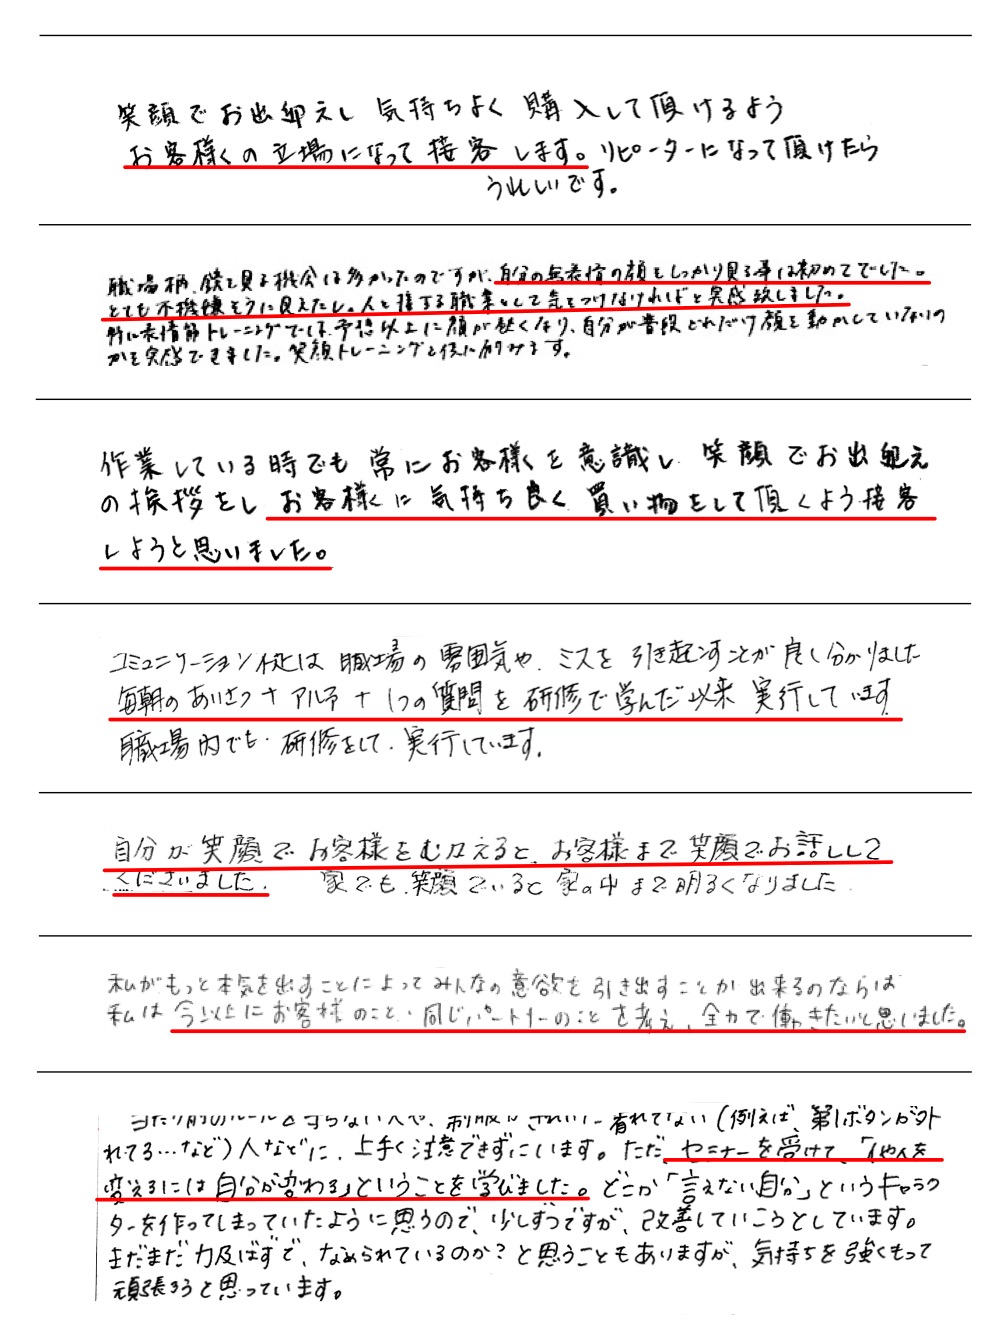 笑顔でお出迎えし 気持ちよく 購入して頂けるよう
お客様の立場になって接客します。リピーターになって頂けたら
うれしいです。
職場柄、鏡を見る機会は多かったのですが、自分の無表情の顔をしっかり見る事は初めてでした。
とても不機嫌そうに見えたし、人と接する職業として気をつけなければと実感致しました。
特に表情筋トレーニングでは、予想以上に顔が なり、自分が普段どれだけ顔を動かしていないの
かを実感できました。笑顔トレーニングと共に励みます。
作業している時でも常にお客様を意識し 笑顔でお出迎え
の挨拶をし お客様に気持ち良く 買い物をして頂くよう接客
しようと思いました。
コミュニケーション は 職場の雰囲気や、ミスを引き起こすことが良く分かりました
毎朝のあいさつ＋アルファ＋1つの質問を研修で学んだ以来 実行しています
職場内でも 研修をして、実行しています。
自分が笑顔でお客様をむかえると、お客様まで笑顔でお話しして
くださいました。 家でも、笑顔でいると家の中まで明るくなりました
私がもっと本気を出すことによってみんなの意欲を引き出すことが出来るのならば
私は今以上にお客様のこと・同じパートナーのことを考え、全力で働きたいと思いました。
当たり前のルールを守らない人や、制服がきれいに着れてない（例えば、第1ボタンが外
れてる…など）人などに、上手く注意できずにいます。ただ、セミナーを受けて、「他人を
変えるには自分が変わる」ということを学びました。どこか「言えない自分」というキャラク
ターを作ってしまっていたように思うので、少しずつですが、改善していこうとしています。
まだまだ力及ばずで、なめられているのか？と思うこともありますが、気持ちを強くもって
頑張ろうと思っています。